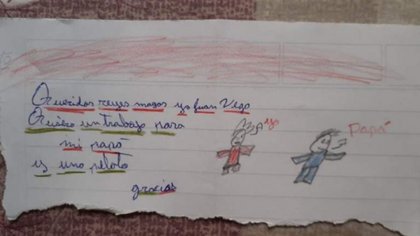 Queridos reyes magos yo Juan Vego
Quiero un trabajo para
mi papá
y uno pelota
gracias
yo
Papá